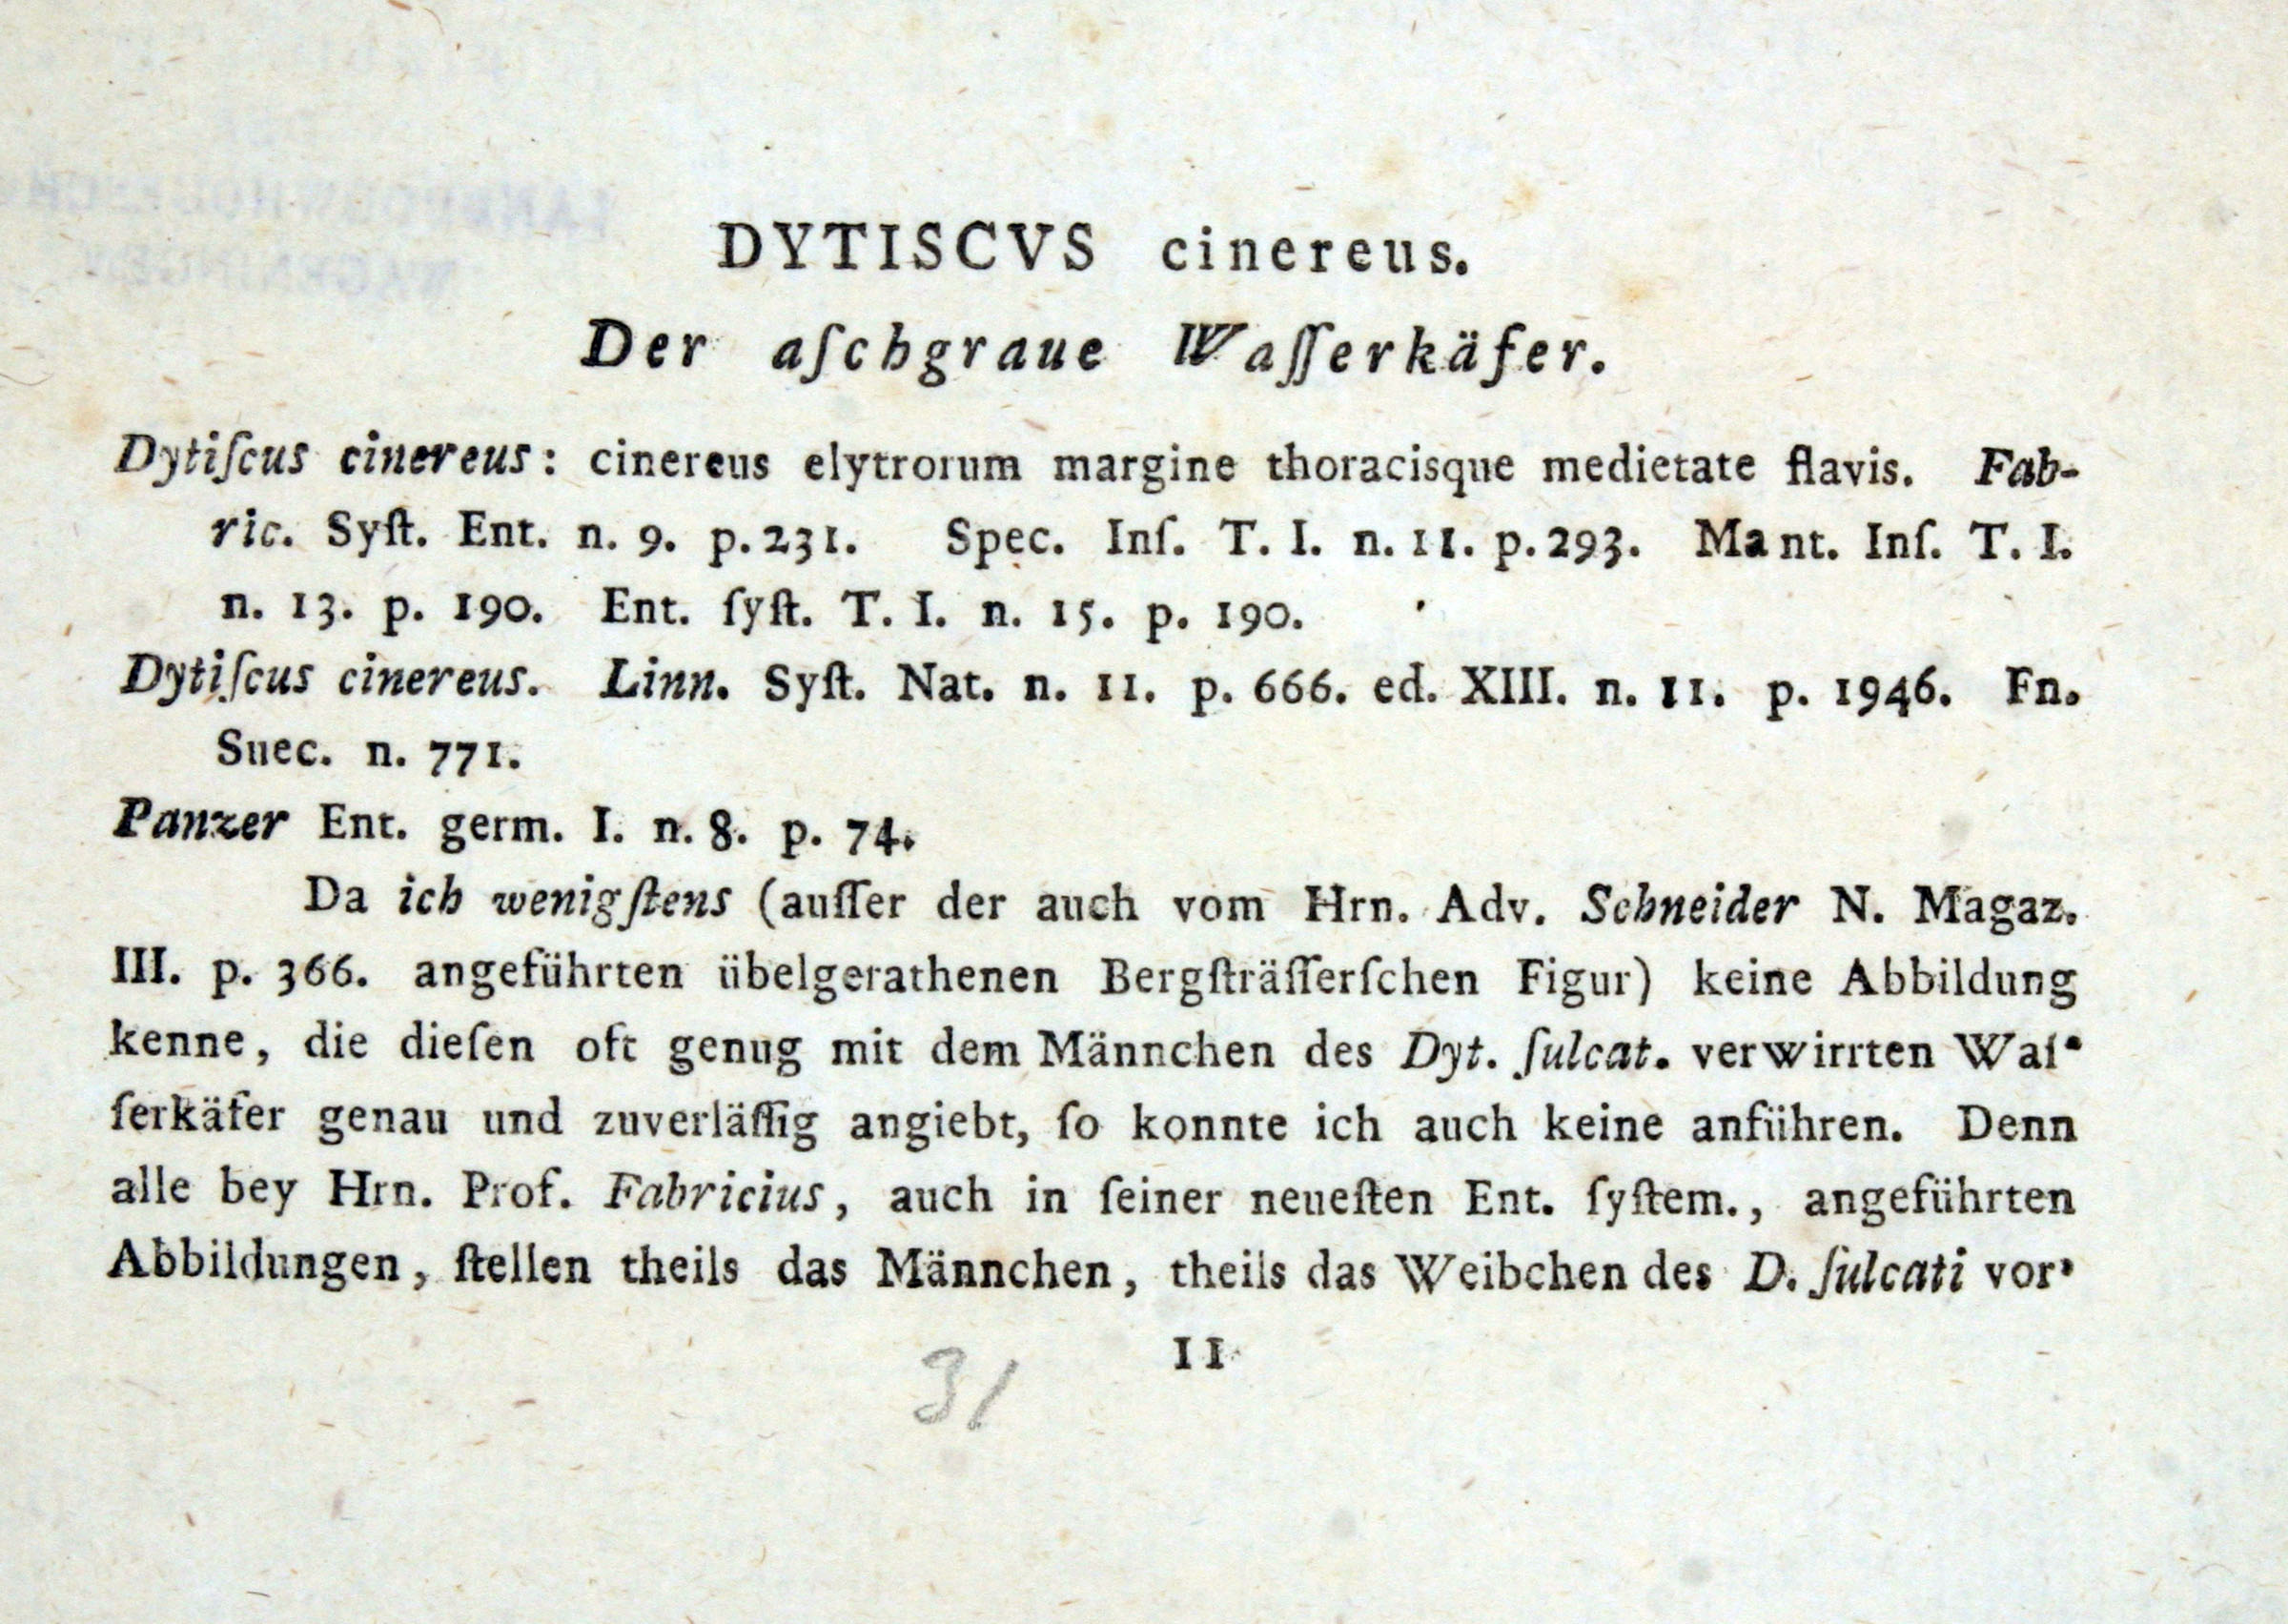 DYTISCVS cinereus.
Der aſchgraue Waſſerkäfer.
Dytiſcus cinereus: cinereus elytrorum margine thoracisque medietate flavis. Fab-
ric. Syſt. Ent. n. 9. p. 231. Spec. Inſ. T. I. n. 11. p. 293. Mant. Inſ. T. I.
n. 13. p. 190. Ent. ſyſt. T. I. n. 15. p. 190.
Dytiſcus cinereus. Linn. Syſt. Nat. n. 11. p. 666. ed. XIII. n. 11. p. 1946. Fn.
Suec. n. 771.
Panzer Ent. germ. I. n. 8. p. 74.
Da ich wenigſtens (auſſer der auch vom Hrn. Adv. Schneider N. Magaz.
III. p. 366. angeführten übelgerathenen Bergſträſſerſchen Figur) keine Abbildung
kenne, die dieſen oft genug mit dem Männchen des Dyt. ſulcat. verwirrten Waſ-
ſerkäfer genau und zuverläſſig angiebt, ſo konnte ich auch keine anführen. Denn
alle bey Hrn. Prof. Fabricius, auch in ſeiner neueſten Ent. ſyſtem., angeführten
Abbildungen, ſtellen theils das Männchen, theils das Weibchen des D. ſulcati vor-
11
31